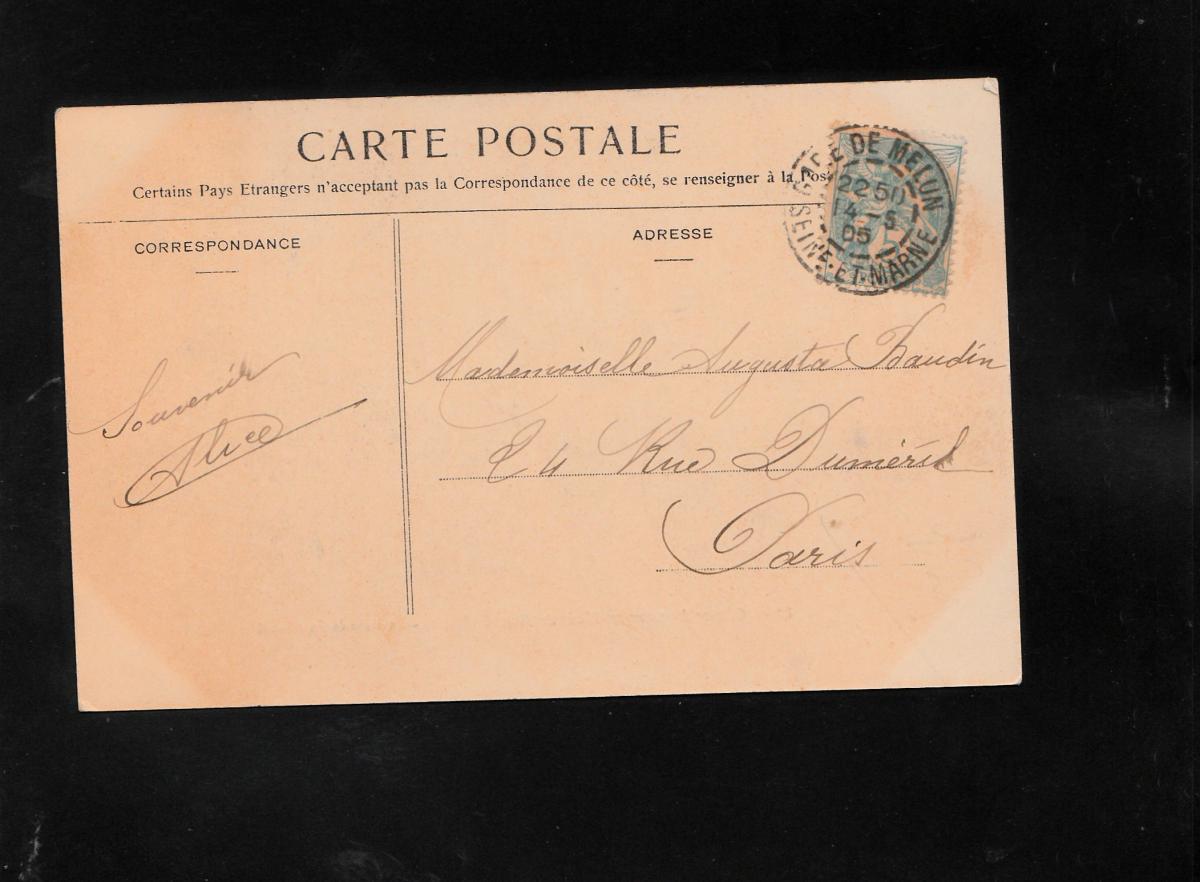 CARTE POSTALE
Certains Pays Etrangers n'acceptant pas la Correspondance de ce côté, se renseigner à la Pos
CORRESPONDANCE
ADRESSE
GARE DE MELUN
22 50
4 -5
05
SEINE-ET-MARNE
Souvenir
Alice
Mademoiselle Augusta Baudin
24 Rue Duméril
Paris